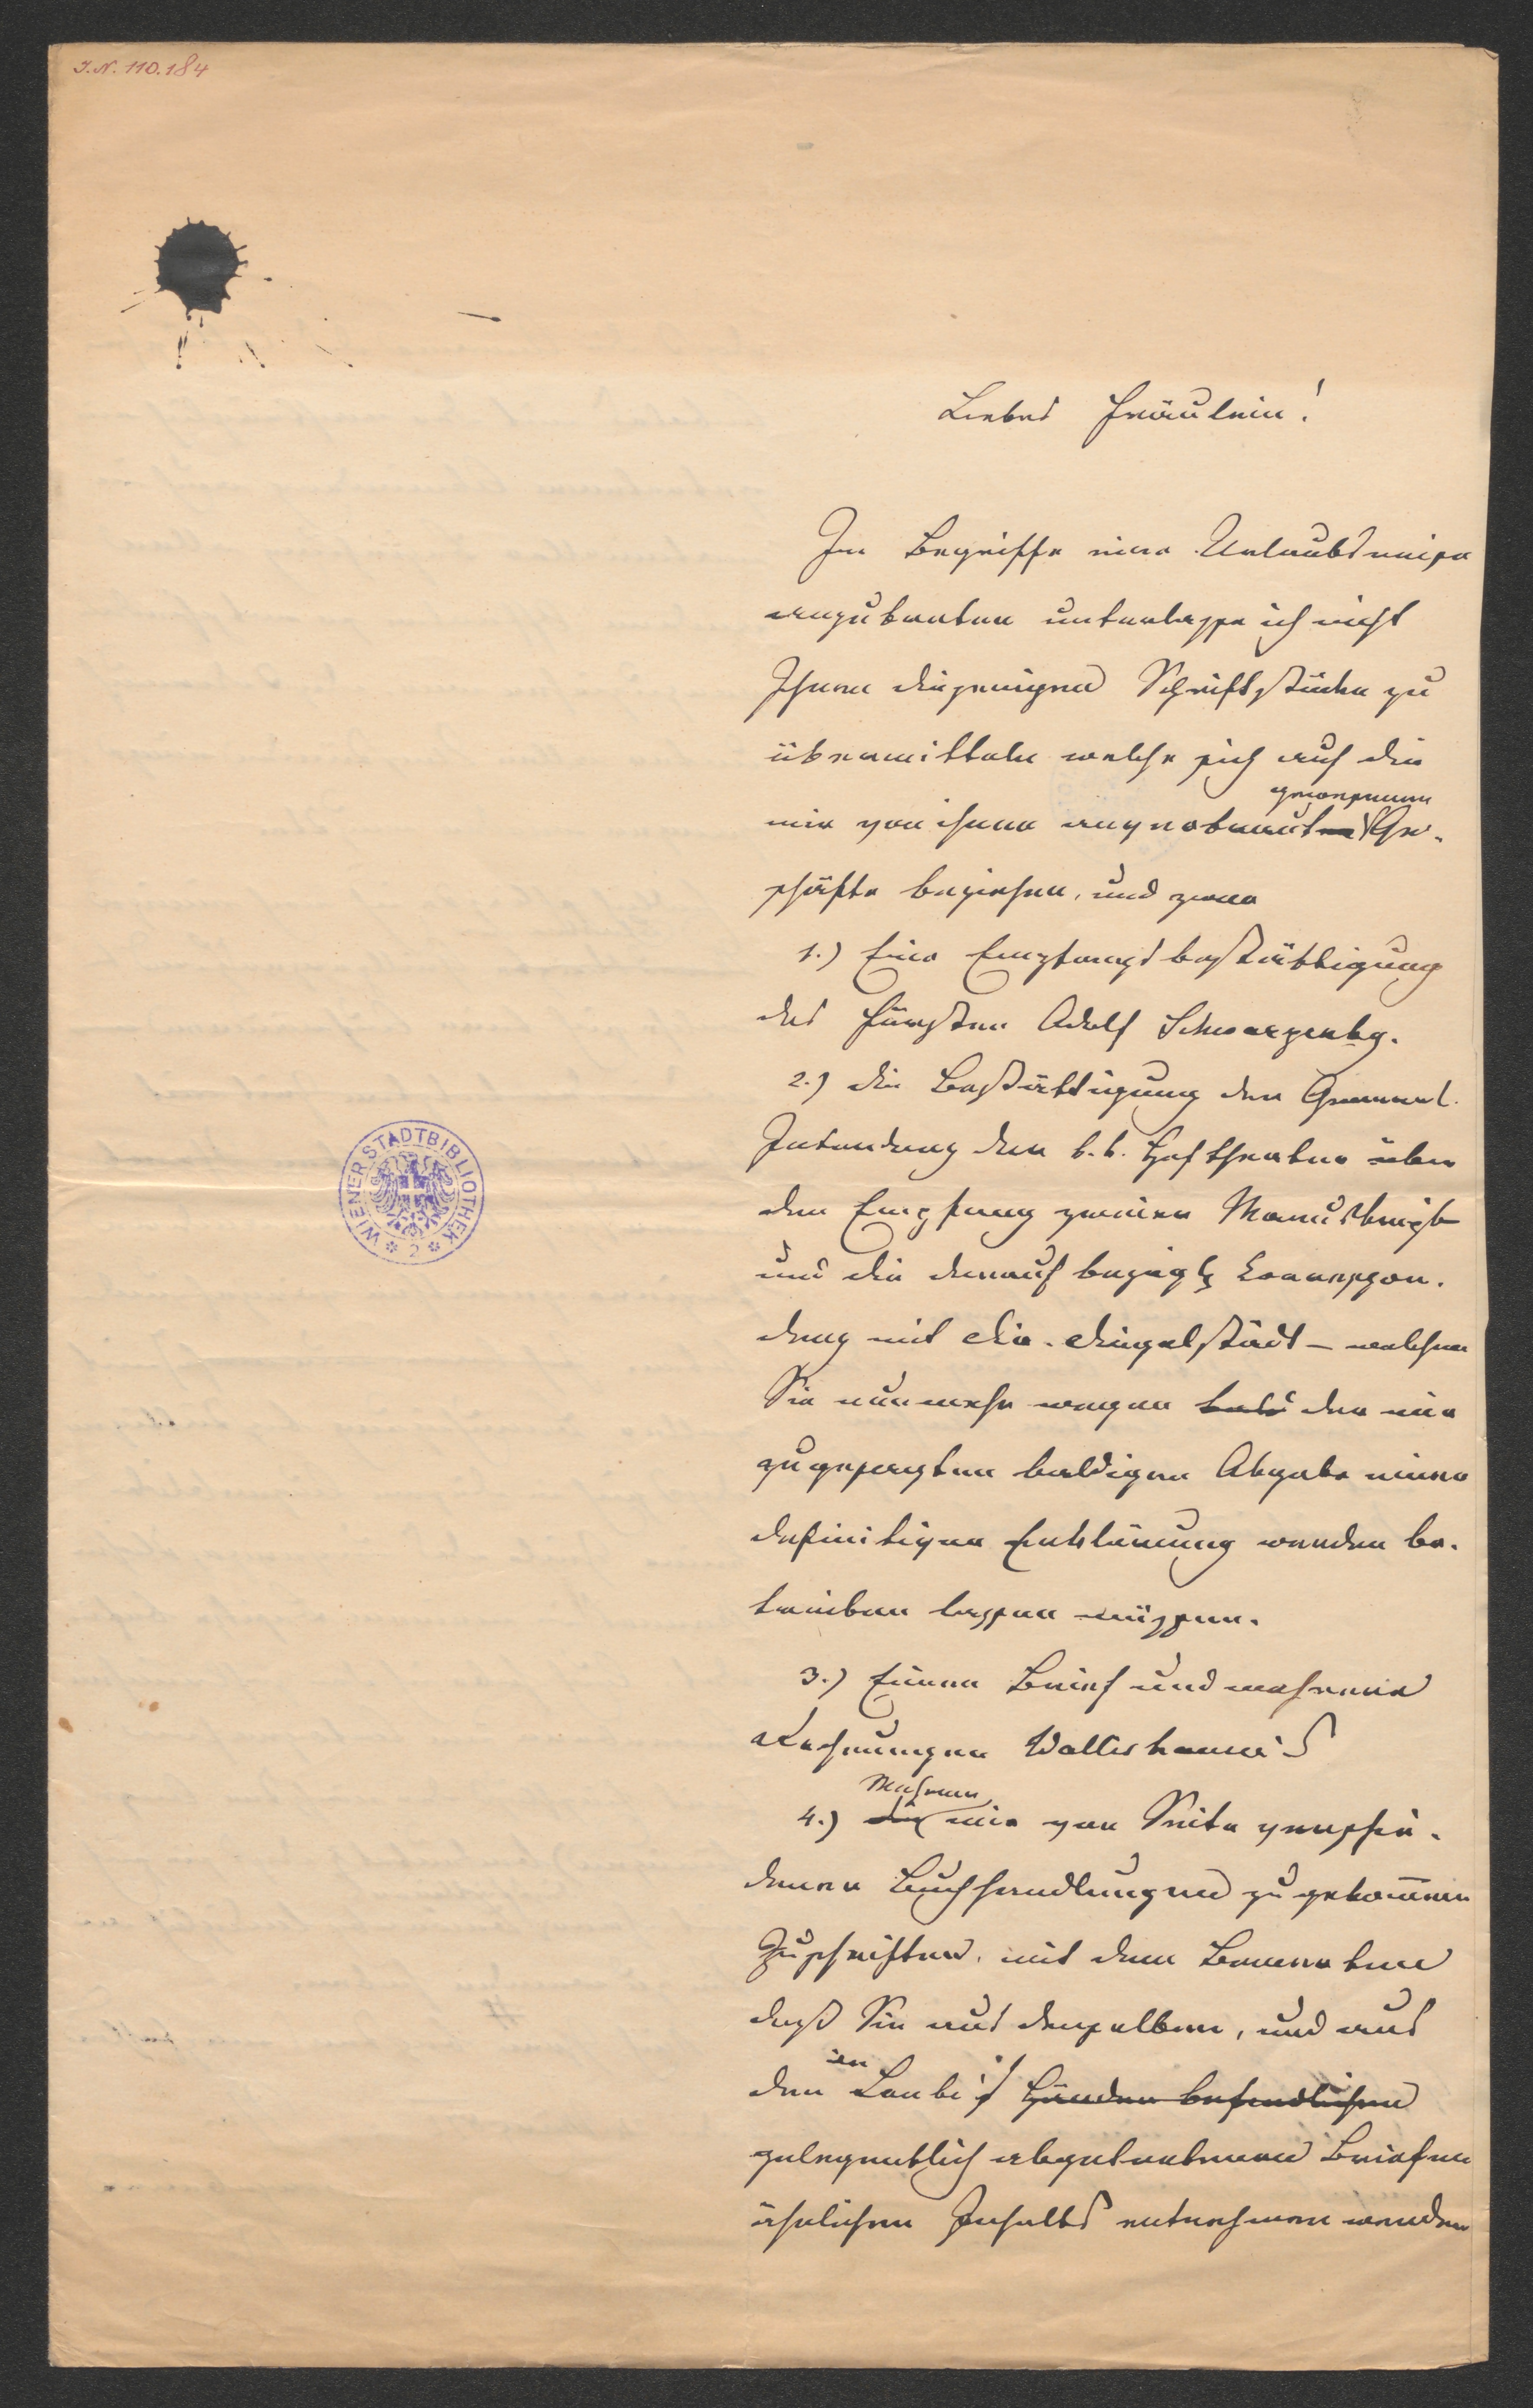 I.N. 110.184
Liebes Fräulein!
Im Begriffe eine Urlaubsreise
anzutreten unterlasse ich nicht
Ihnen diejenigen Schriftstücke zu
übermitteln welche sich auf die
gewesenen
mir von ihnen anvertraut Ge-
schäfte beziehen, und zwar
1.) Eine Empfangsbestättigung
des Fürsten Adolf Schwarzenbg.
2.) die Bestättigung der General-
Intendanz der k. k. Hoftheater über
den Empfang zweier Manuskripte
und die darauf bezügl. Correspon-
denz mit Dir. Dingelstädt – welchen
Sie nunmehr wegen bald der mir
zugesagten baldigen Abgabe einer
definitiven Erklärung werden be-
treiben lassen müssen.
3.) Einen Brief und mehrere
Rechnungen Wallishausers
Mehrere
4.) die mir von Seite verschie-
dener Buchhandlungen zugekom̄enen
Zuschriften, mit dem Bemerken
daß Sie aus denselben, und aus
den an Laube Händen befindlichen
gelegentlich abgetretenen Briefen
ähnlichen Inhalts entnehmen werden
WIENER STADTBIBLIOTHEK
2